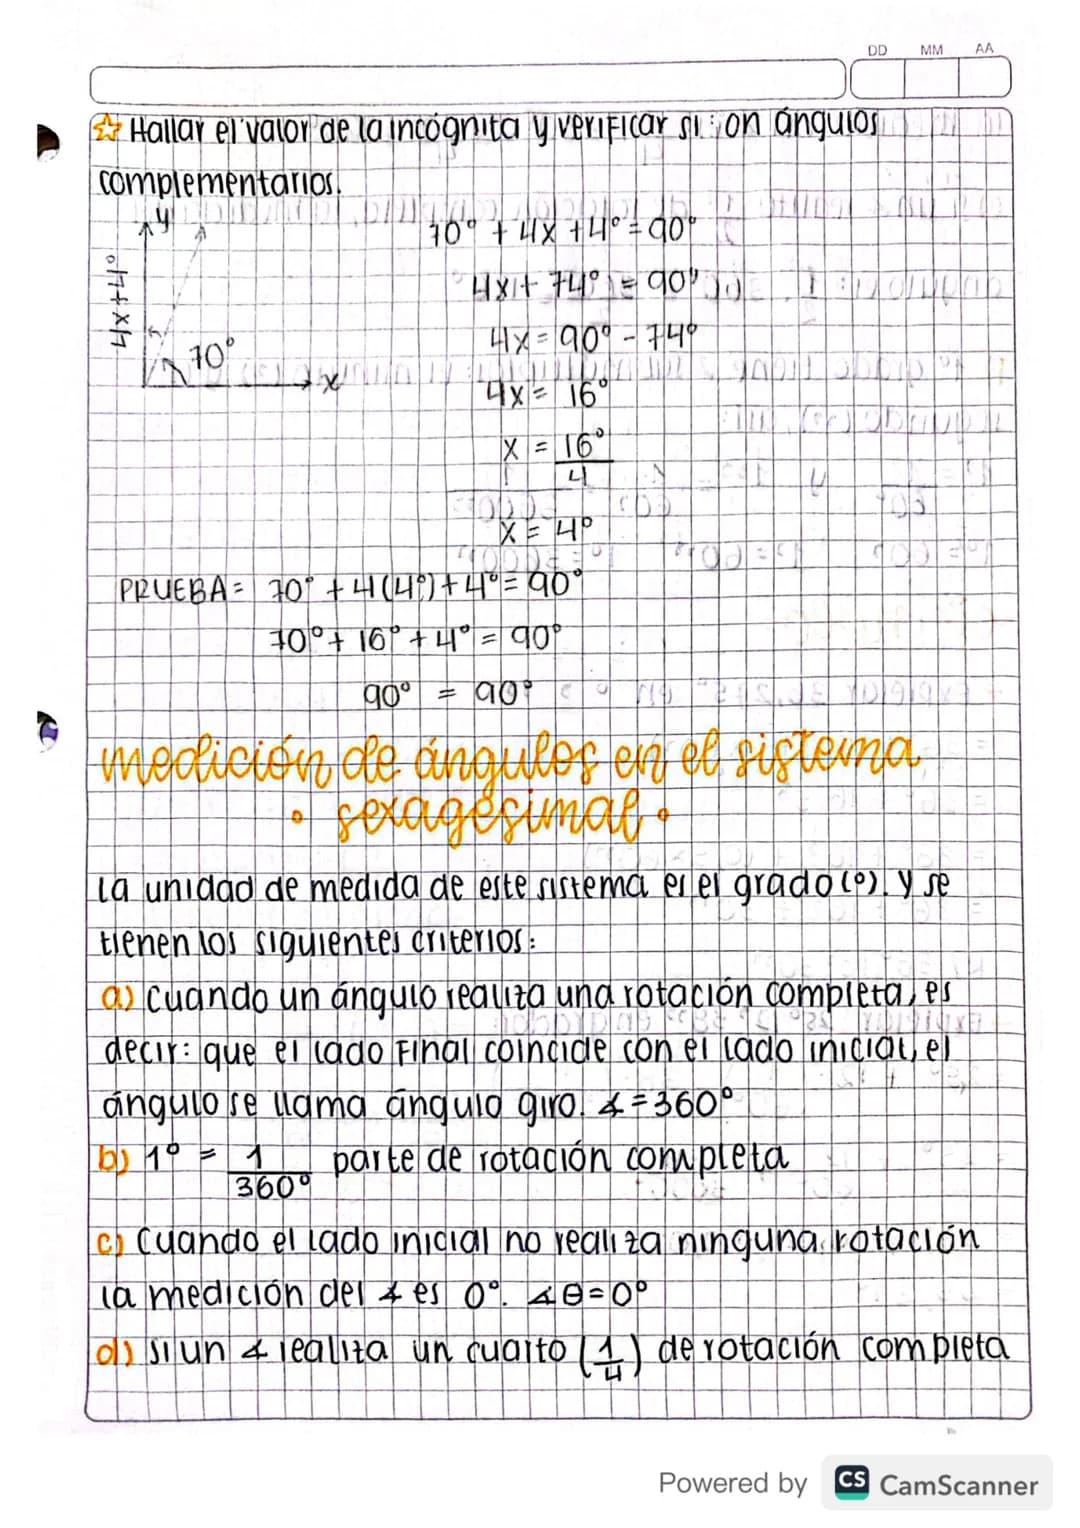 DD MM AA
☆ Hallar el valor de la incógnita y verificar si son ángulos
complementarios.
y
4x+4°
70°
x
70° + 4x + 4° = 90°
4x + 74° = 90°
4x = 90° - 74°
4x = 16°
x = 16°
4
x = 4°
PRUEBA = 70° + 4(4°) + 4° = 90°
70° + 16° + 4° = 90°
90° = 90°
medición de ángulos en el sistema
• sexagesimal •
La unidad de medida de este sistema es el grado (°). y se
tienen los siguientes criterios:
a) Cuando un ángulo realiza una rotación completa, es
decir: que el lado Final coincide con el lado inicial, el
ángulo se llama ángulo giro. ∡=360°
b) 1° = 1/360° parte de rotación completa
c) Cuando el lado inicial no realiza ninguna rotación
la medición del ∡ es 0°. ∡θ=0°
d) si un ∡ realiza un cuarto (1/4) de rotación completa
Powered by CS CamScanner